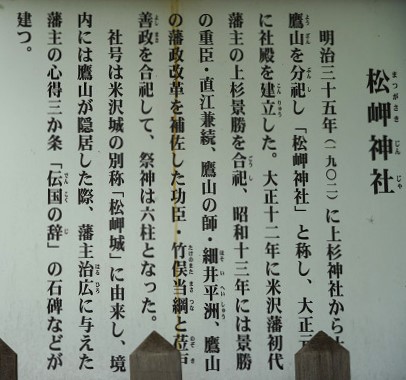 松岬神社
明治三十五年(一九〇二)に上杉神社から
鷹山を分祀し「松岬神社」と称し、大正元
に社殿を建立した。大正十二年に米沢藩初代
藩主の上杉景勝を合祀、昭和十三年には景勝
の重臣・直江兼続、鷹山の師・細井平洲、鷹山
の藩政改革を補佐した功臣・竹俣当綱と莅戸
善政を合祀して、祭神は六柱となった。
社号は米沢城の別称「松岬城」に由来し、境
内には鷹山が隠居した際、藩主治広に与えた
藩主の心得三か条「伝国の辞」の石碑などが
建つ。